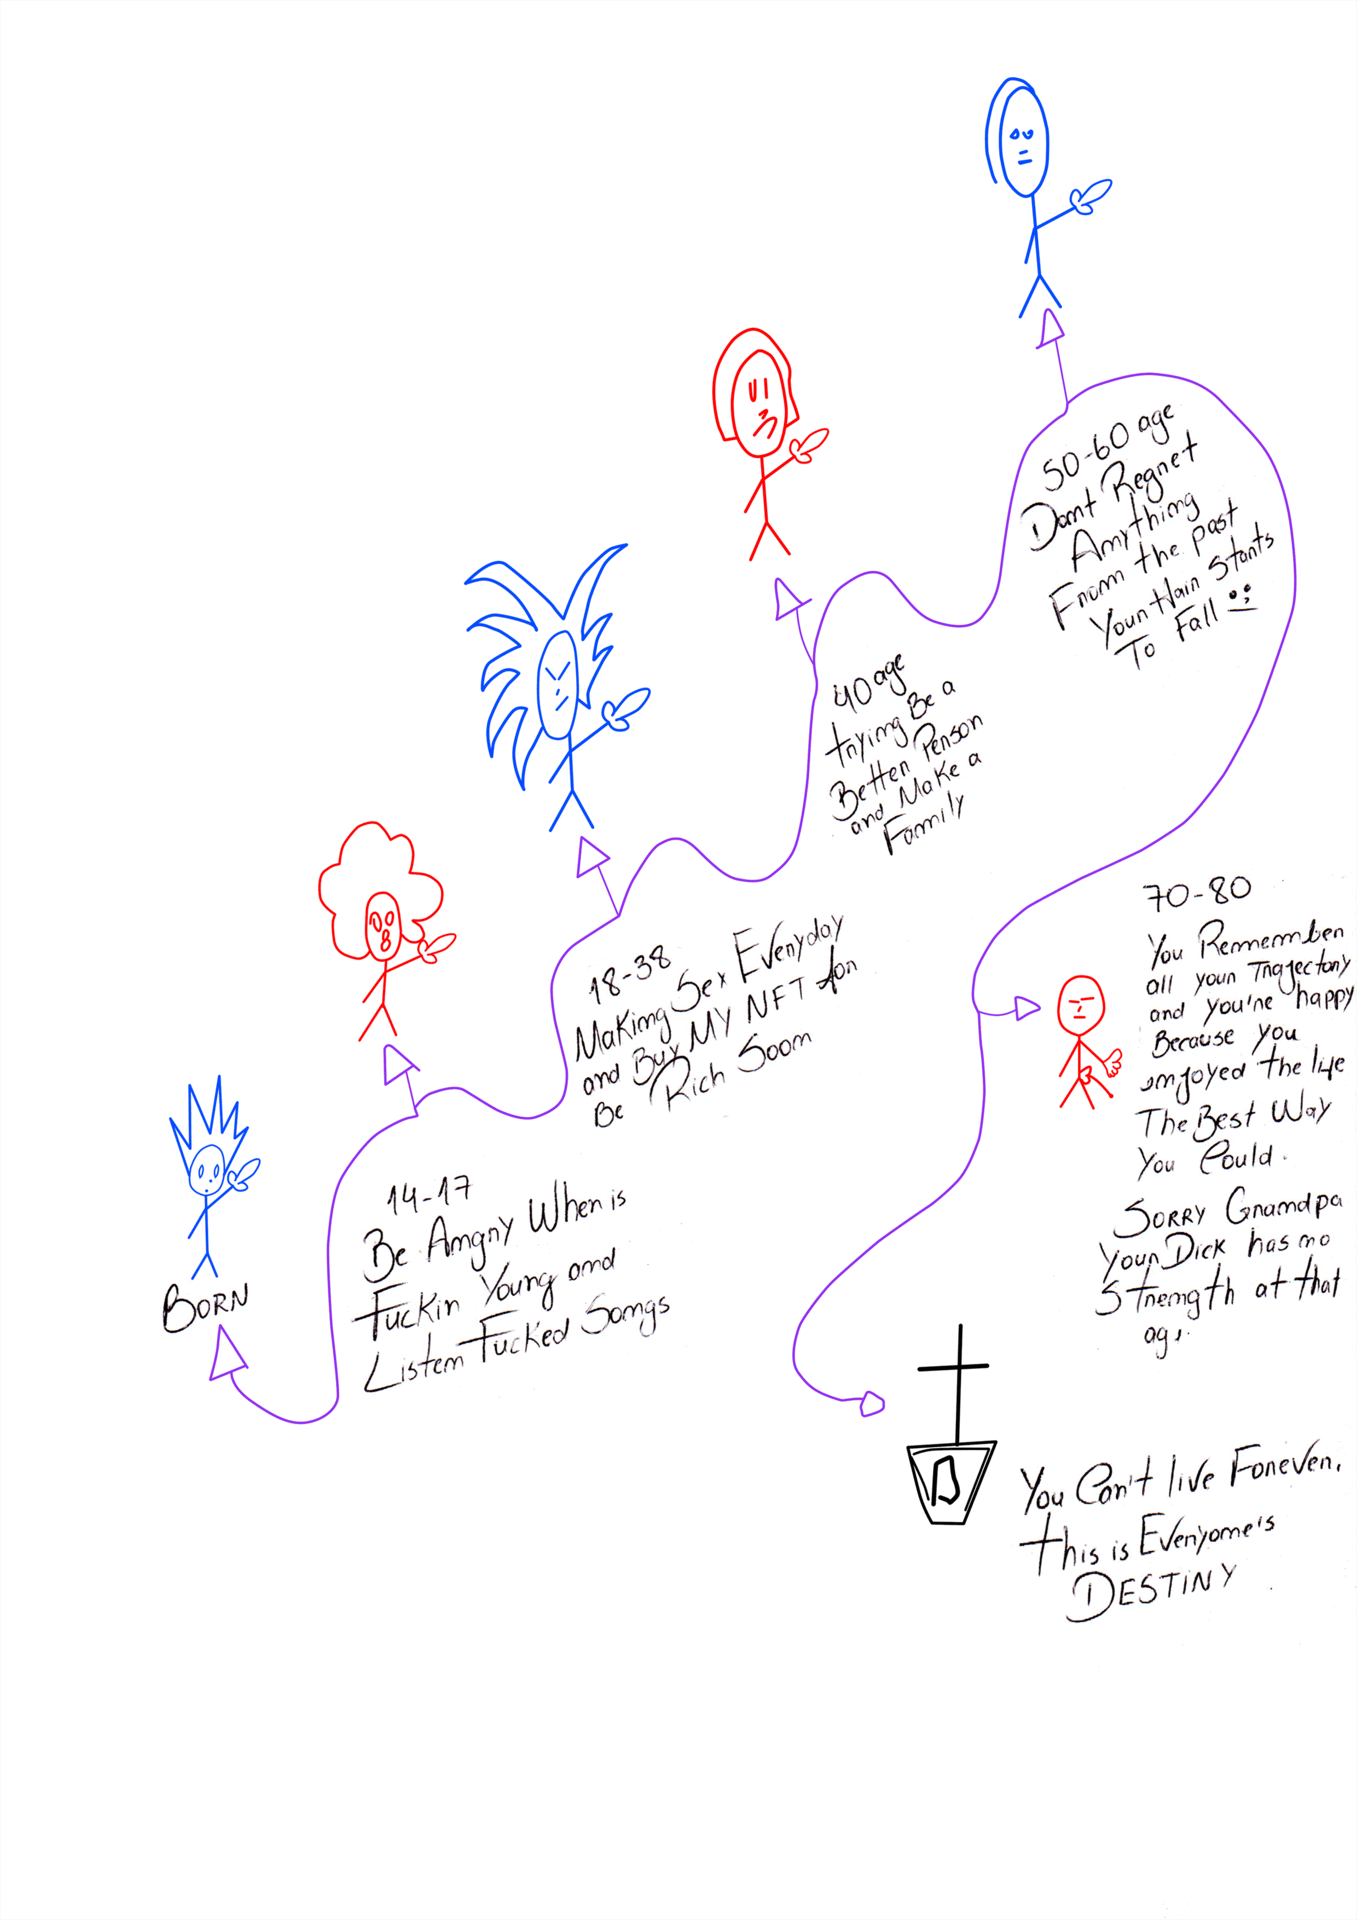 BORN
14-17
Be Angry When is
Fuckin Young and
Listen Fucked Songs
18-38
Making Sex Everyday
and Buy MY NFT for
Be Rich Soon
40 age
trying Be a
Better Person
and Make a
Family
50-60 age
Dont Regret
Anything
From the past
Your Hair Starts
To Fall
70-80
You Remember
all your Trajectory
and you're happy
Because you
enjoyed the life
The Best Way
You Could.
SORRY Grandpa
Your Dick has no
Strength at that
age.
You Can't live Forever.
this is Everyone's
DESTINY